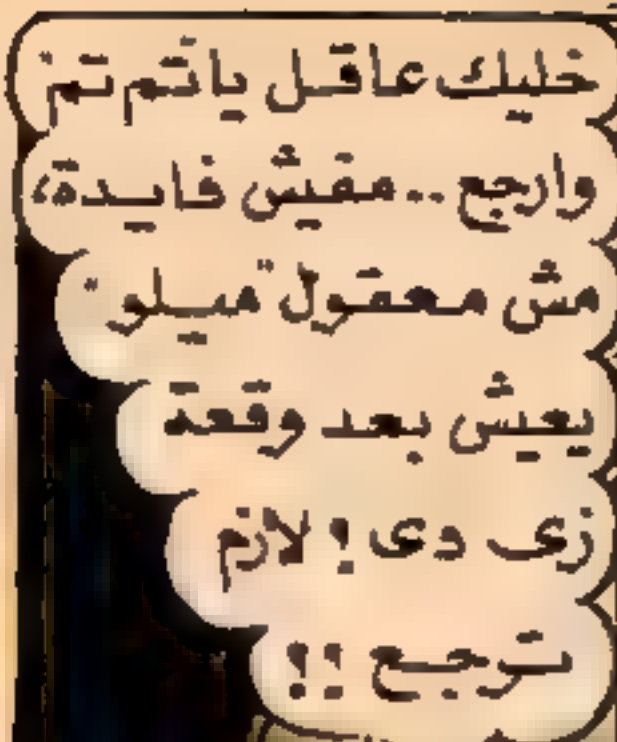 خليك عاقل ياتم تم
وارجع .. مفيش فايدة،
مش معقول "ميلو"
يعيش بعد وقعة
زى دى ! لازم
ترجع !!